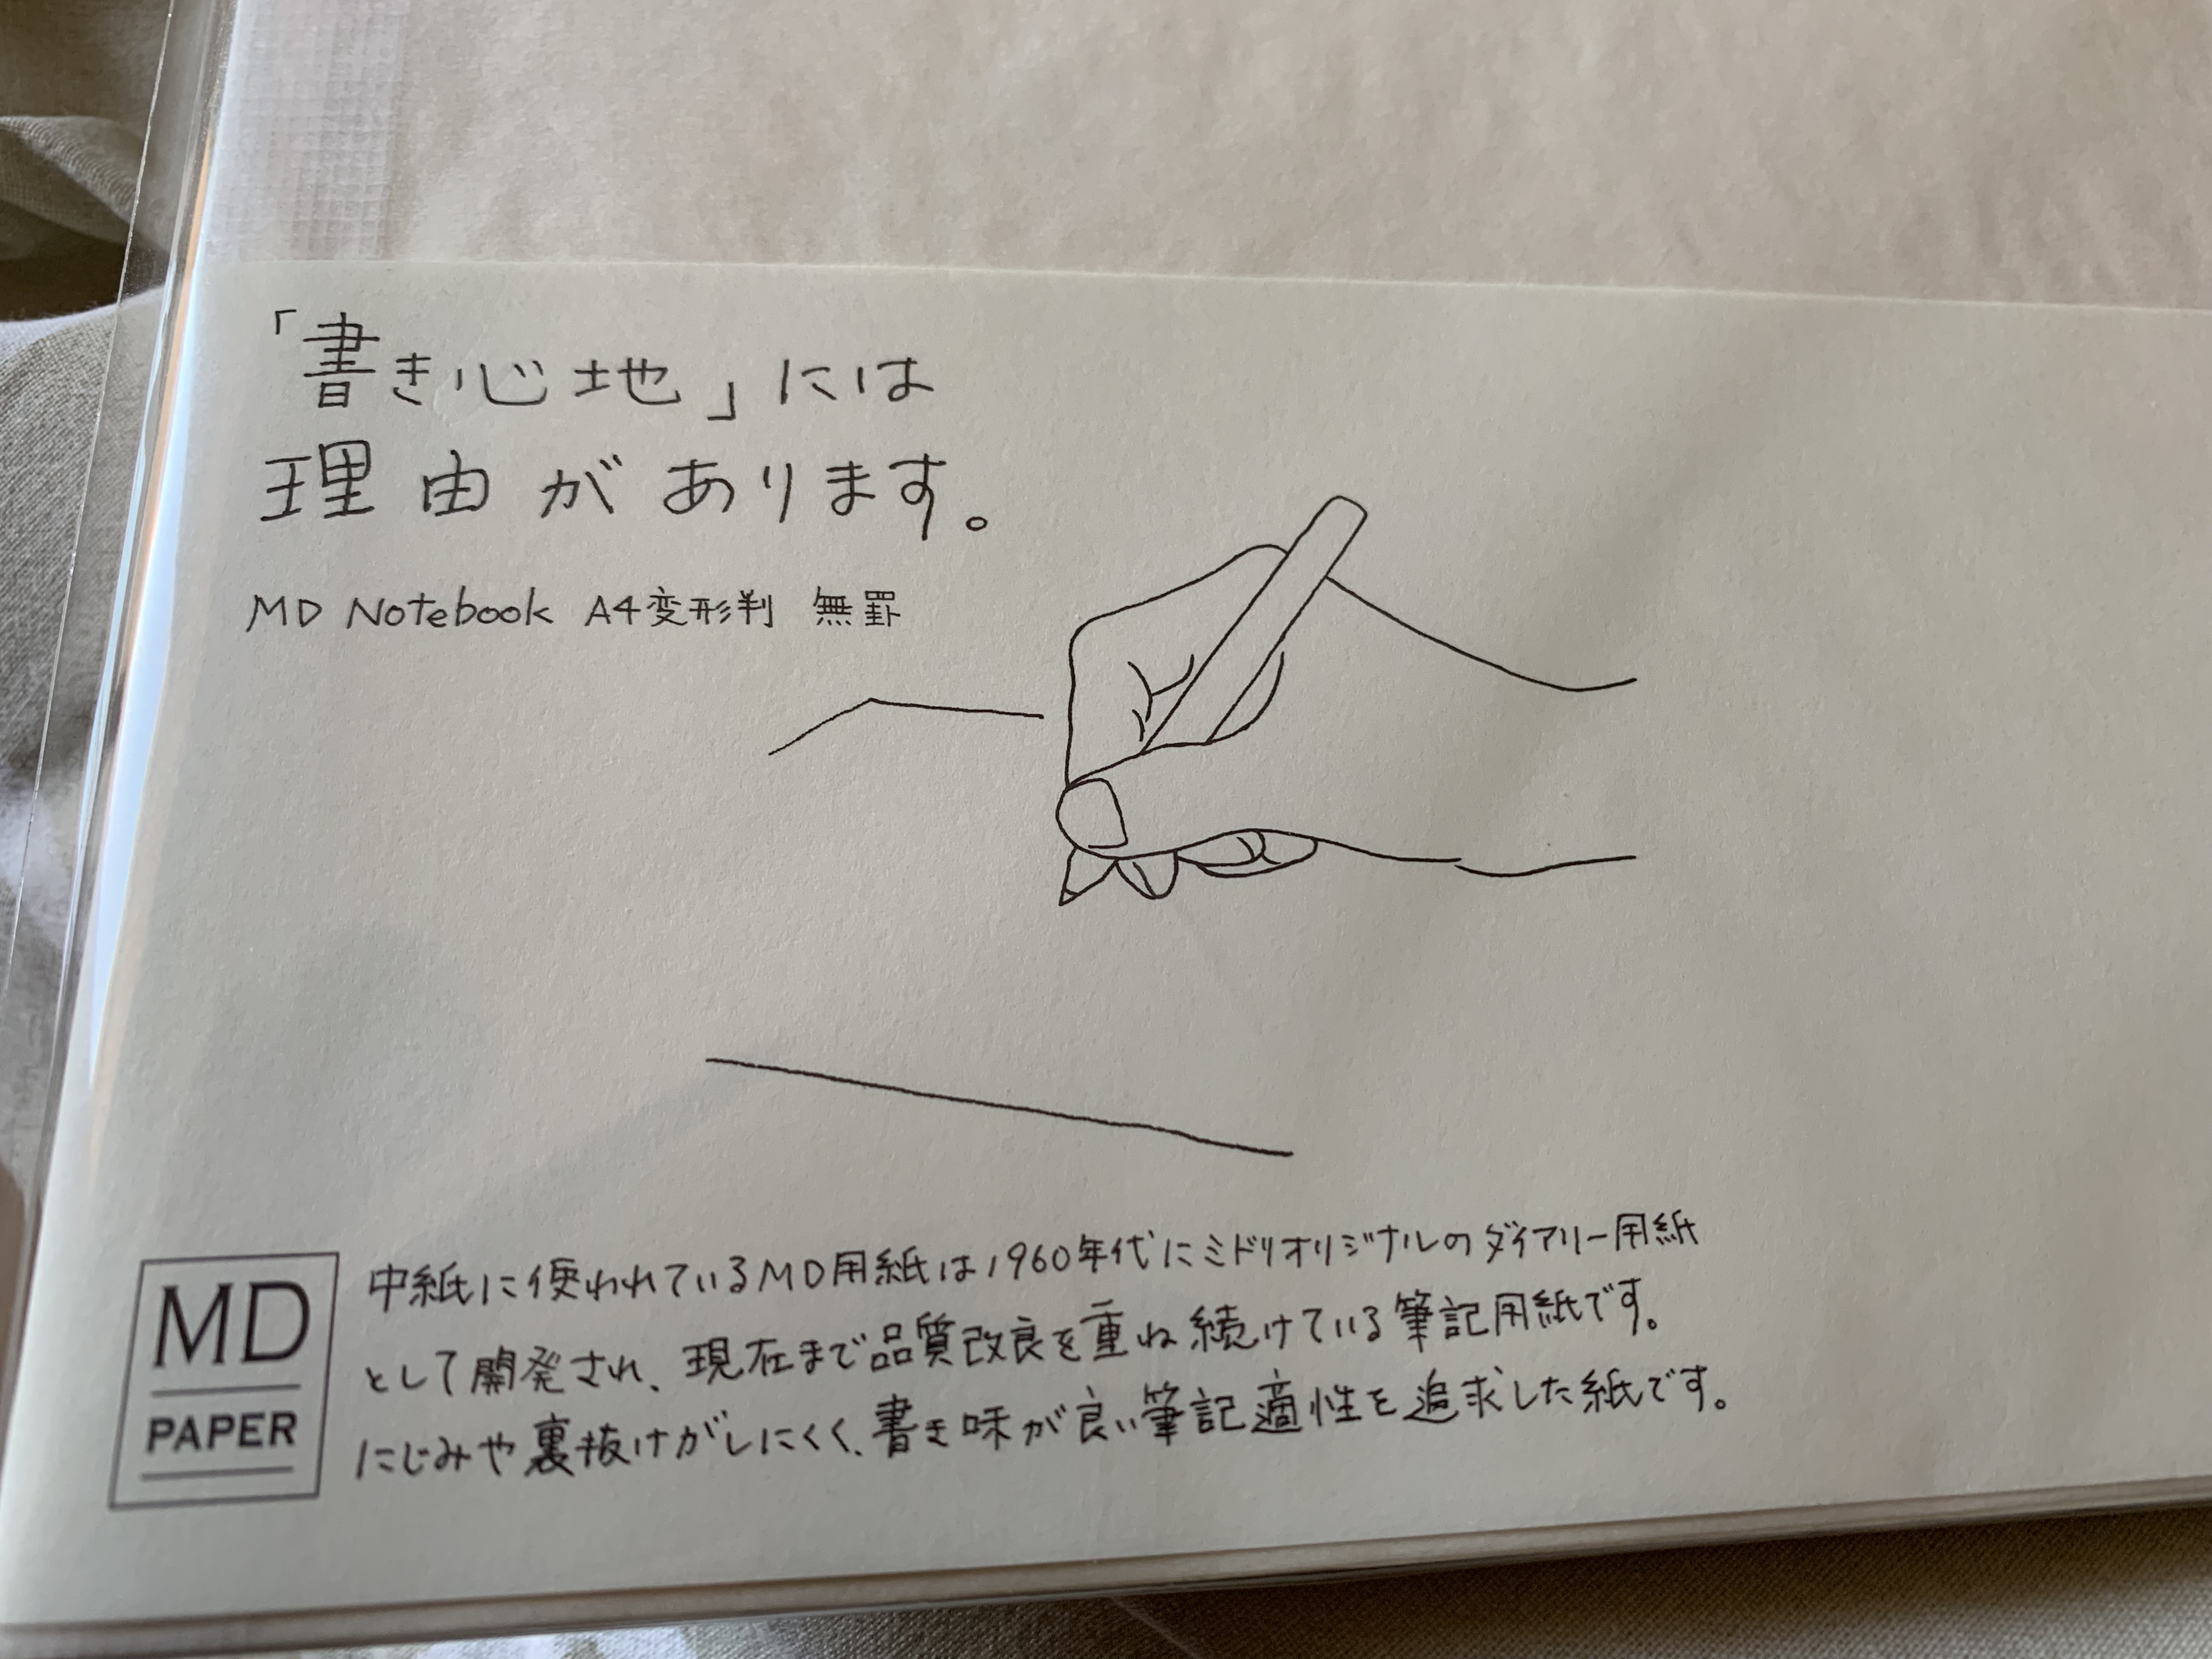 「書き心地」には
理由があります。
MD Notebook A4変形判 無罫
MD
PAPER
中紙に使われているMD用紙は1960年代にミドリオリジナルのダイアリー用紙
として開発され、現在まで品質改良を重ね続けている筆記用紙です。
にじみや裏抜けがしにくく、書き味が良い筆記適性を追求した紙です。